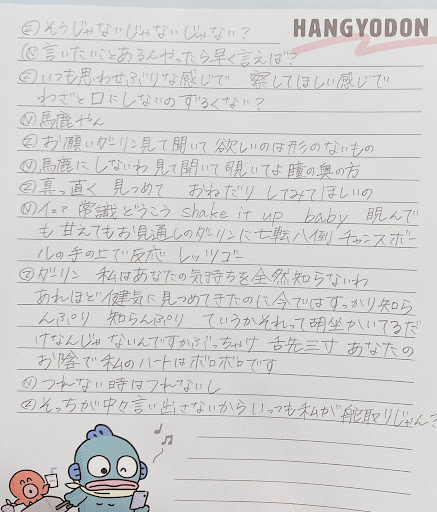 HANGYODON
Ⓩそうじゃないじゃないじゃない?
Ⓝ言いたいことあるんやったら早く言えば?
Ⓩいつも思わせぶりな感じで 察してほしい感じで
わざと口にしないの ずるくない?
Ⓝ馬鹿やん
Ⓩお願いダーリン見て聞いて 欲しいのは形のないもの
Ⓝ馬鹿にしないわ見て聞いて覗いてよ瞳の奥の方
Ⓩ真っ直ぐ 見つめて おねだり してみてほしいの
Ⓝイェア 常識どうこう shake it up baby 睨んで
も 甘えてもお見通しのダーリンに七転八倒 チャンスボー
ルの手の上で反応 レッツゴー
Ⓩダーリン 私はあなたの気持ちを全然知らないわ
あれほど健気に見つめてきたのに今ではすっかり知ら
んぷり 知らんぷり ていうかそれって胡坐かいてるだ
けなんじゃないんですかぶっちゃけ 舌先三寸 あなたの
お陰で私のハートはボロボロです
Ⓝつれない時はつれないし
Ⓩそっちが中々言い出さないからいっつも私が舵取りじゃん?